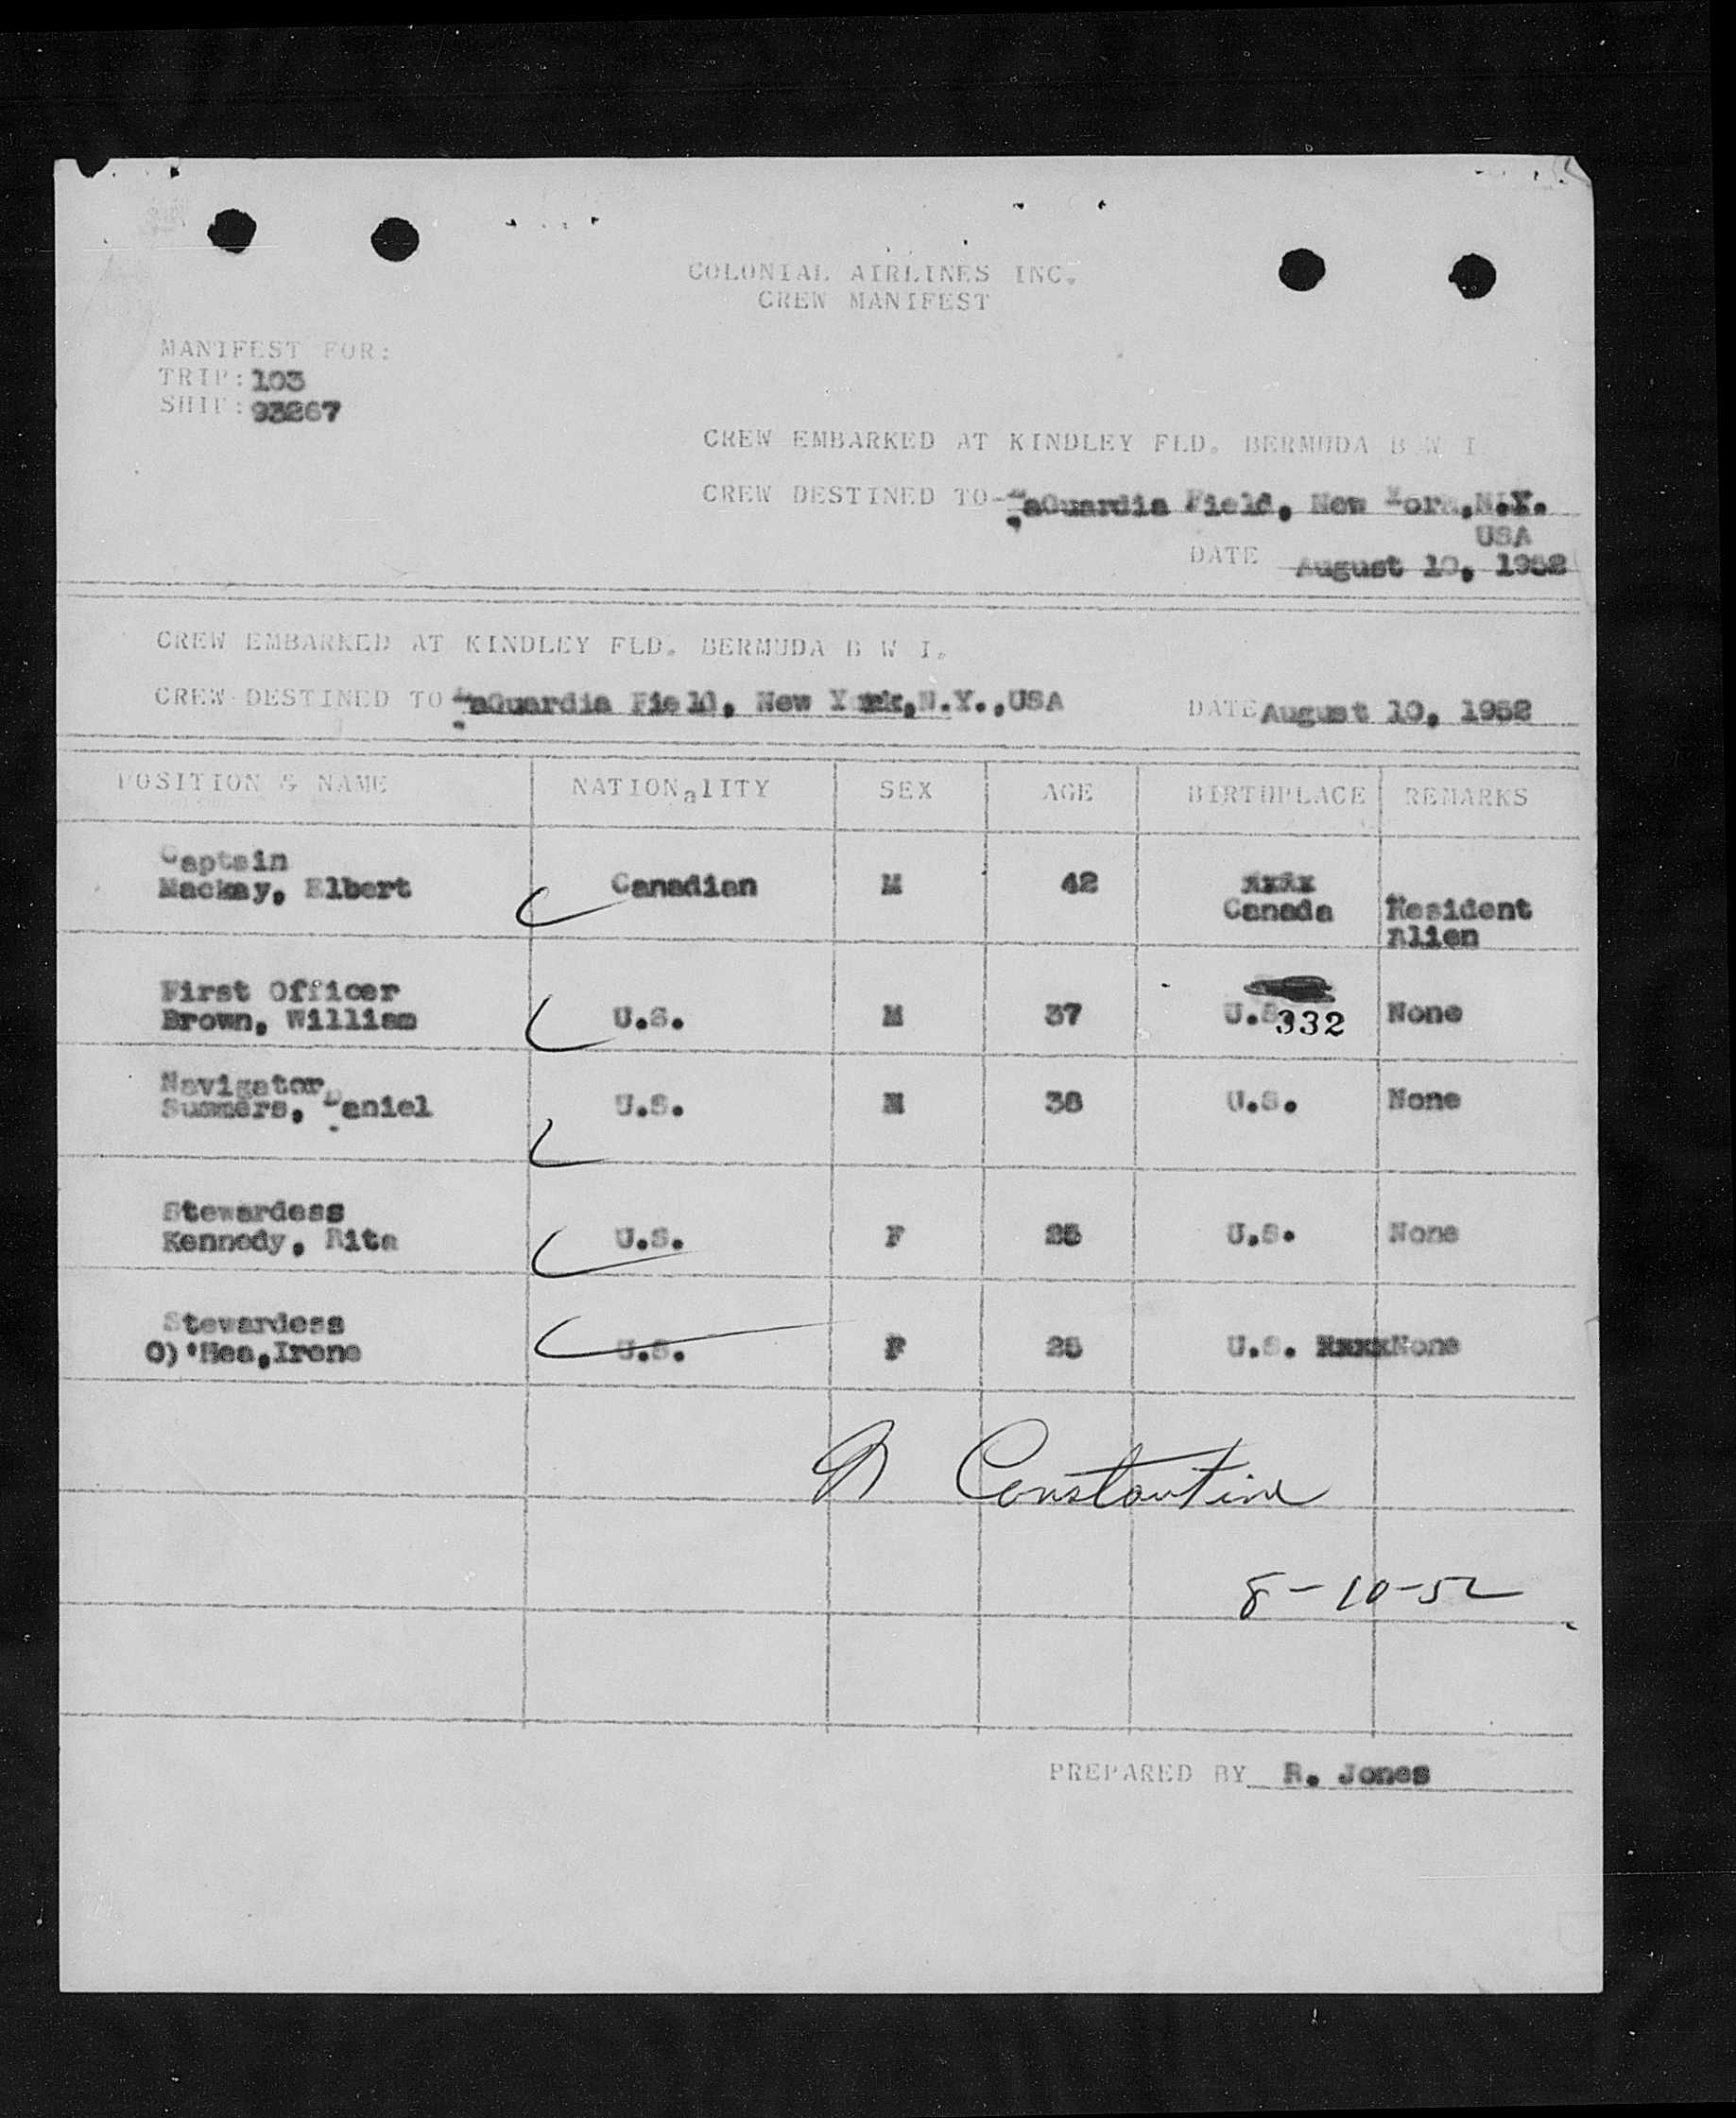 COLONIAL AIRLINES INC.
CREW MANIFEST
MANIFEST FOR:
TRIP: 103
SHIP: 93267
CREW EMBARKED AT KINDLEY FLD. BERMUDA B W I
CREW DESTINED TO-LaGuardia Field, New York, N.Y.
USA
DATE August 10, 1952
CREW EMBARKED AT KINDLEY FLD. BERMUDA B W I.
CREW DESTINED TO LaGuardia Field, New York, N.Y.,USA DATE August 10, 1952
POSITION & NAME NATIONalITY SEX AGE BIRTHPLACE REMARKS
Captain
Mackay, Elbert Canadian M 42 xxxx
Canada Resident
Alien
First Officer
Brown, William U.S. M 37 U.S. 332 None
Navigator
Summers, Daniel U.S. M 38 U.S. None
Stewardess
Kennedy, Rita U.S. F U.S. None
Stewardess
O)'Hea,Irene U.S. F 25 U.S. xxxxNone
Constantine
8-10-52
PREPARED BY R. Jones